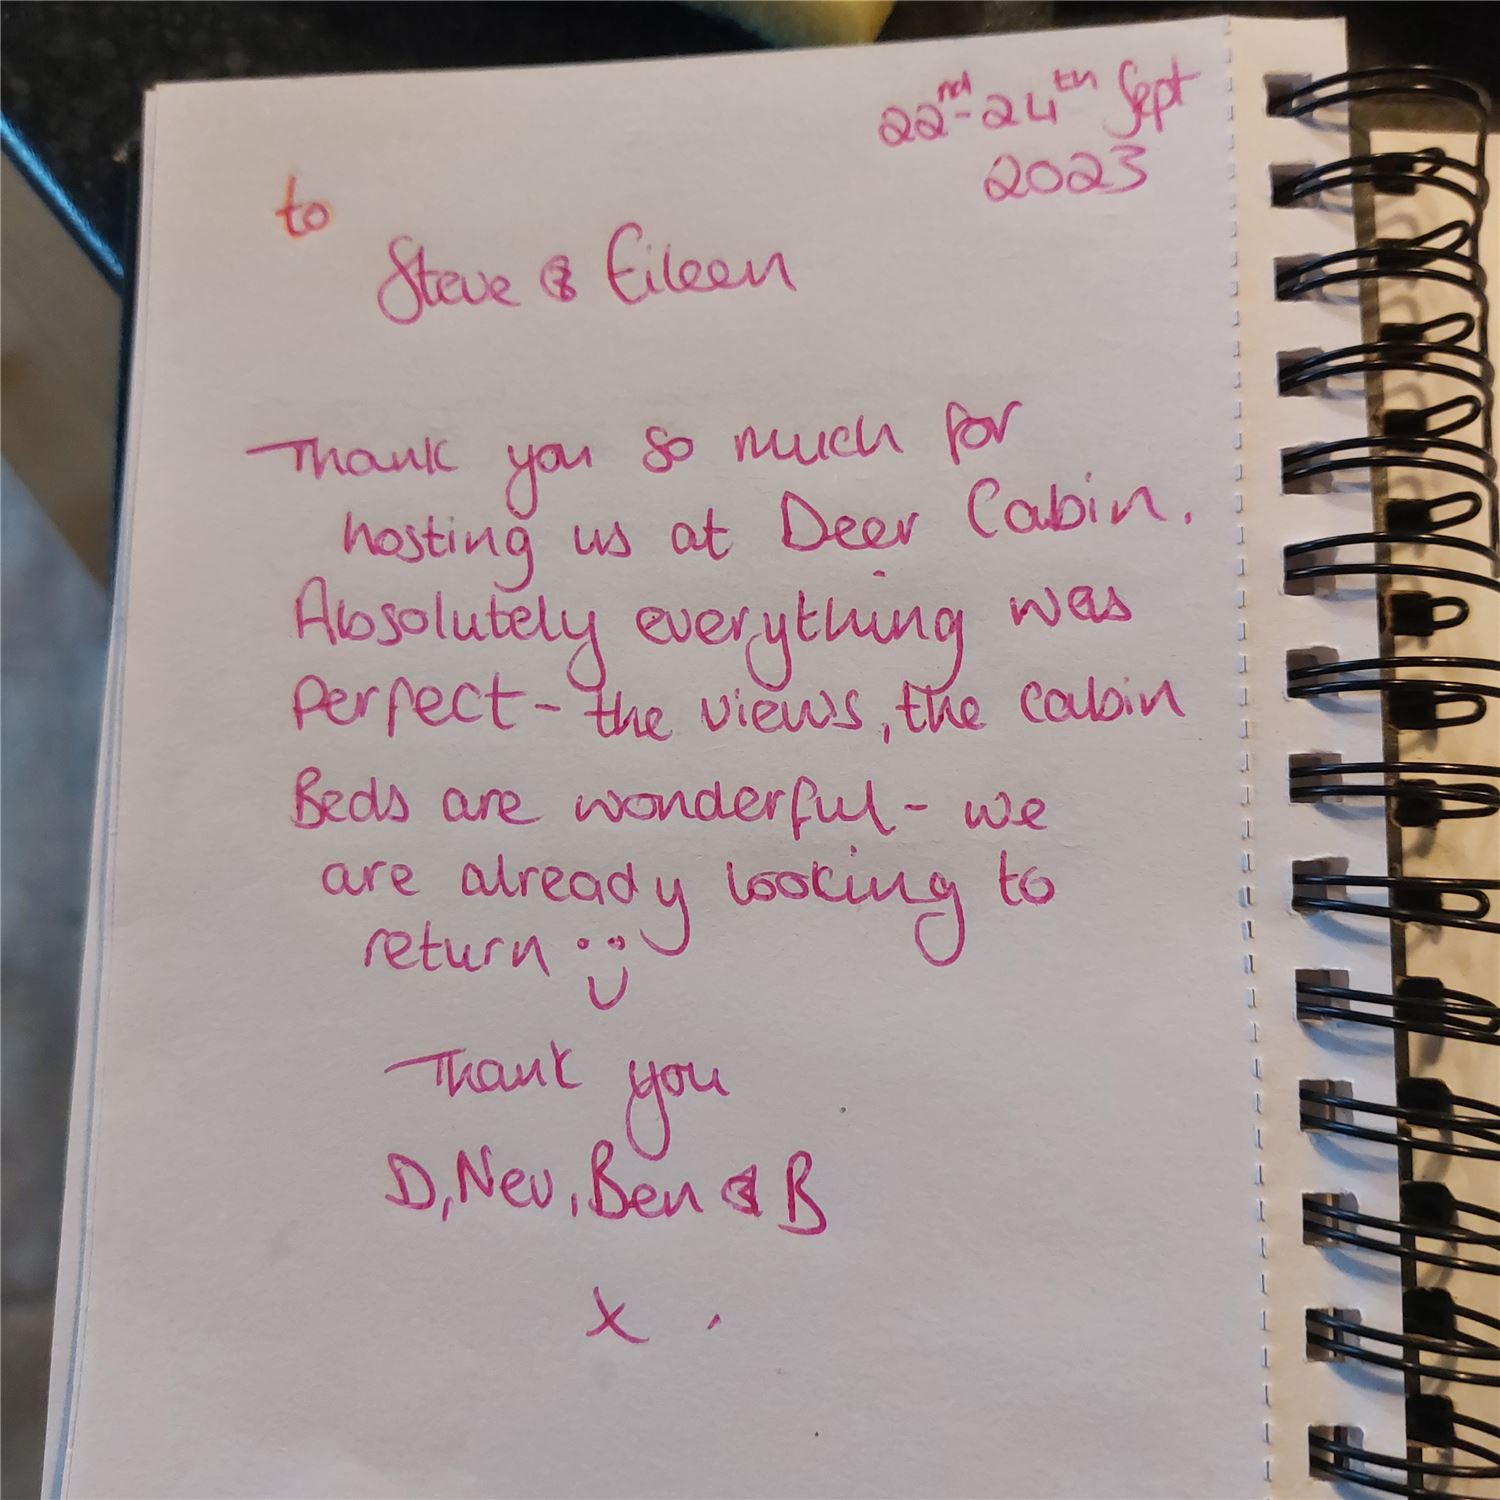 22nd-24th Sept
2023
to
Steve & Eileen
Thank you so much for
hosting us at Deer Cabin.
Absolutely everything was
perfect - the views, the cabin
Beds are wonderful - we
are already looking to
return :)
Thank you
D, Nev, Ben & B
x